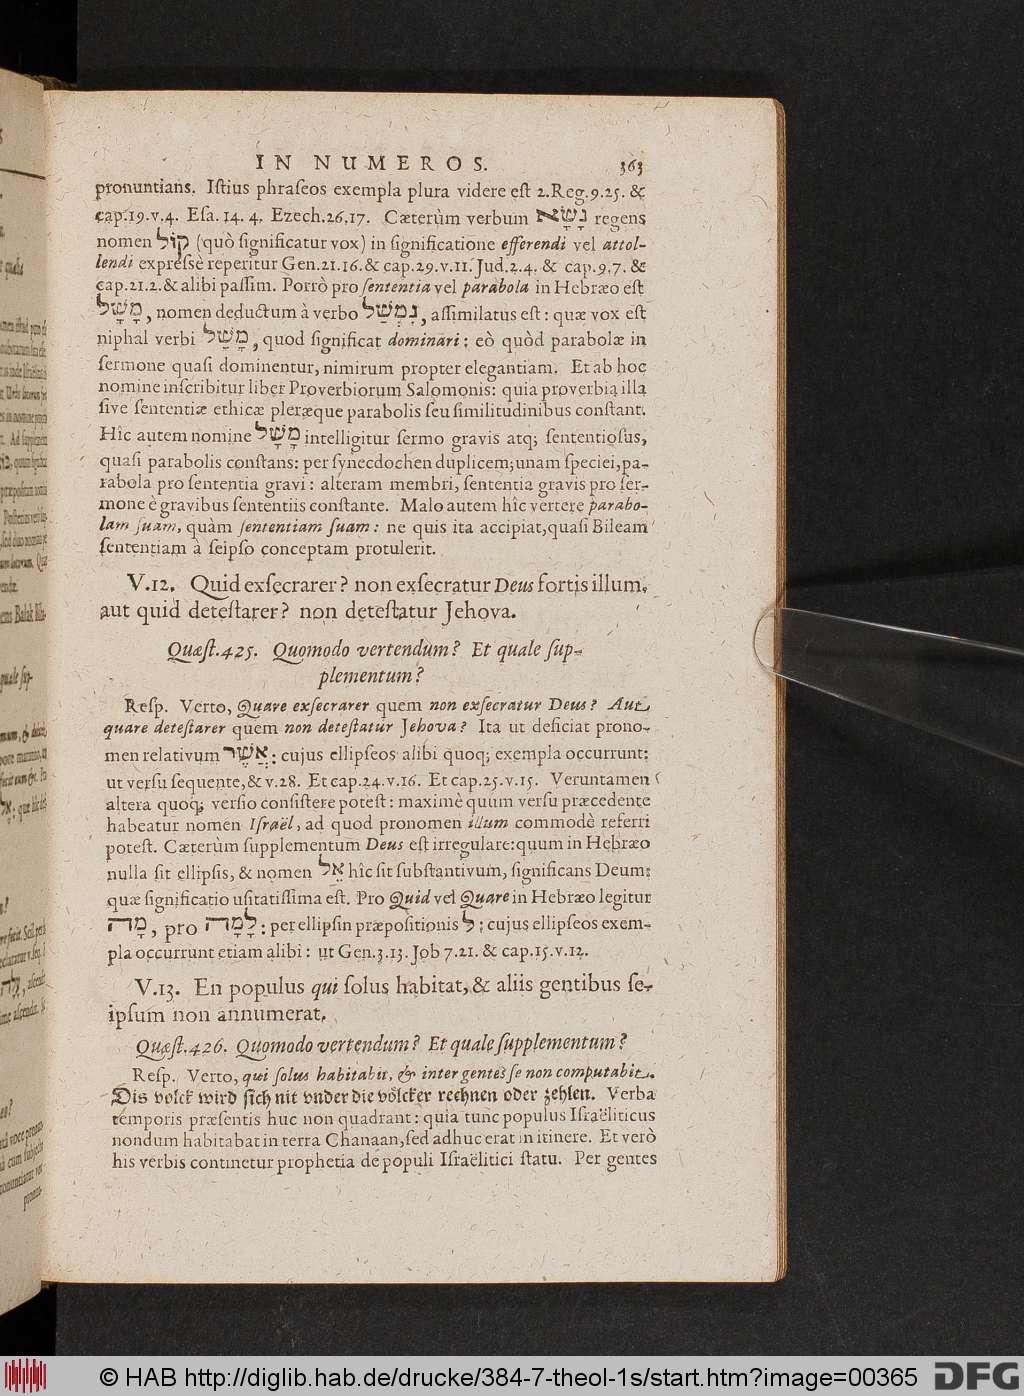 IN NUMEROS. 363
pronuntians. Istius phraseos exempla plura videre est 2.Reg.9.25. &
cap.19.v.4. Esa. 14. 4. Ezech.26.17. Cæterùm verbum נָשָׂא regens
nomen קוֹל (quò significatur vox) in significatione efferendi vel attol-
lendi expressè reperitur Gen.21.16.& cap.29.v.11. Jud.2.4. & cap.9.7. &
cap.21.2.& alibi passim. Porrò pro sententia vel parabola in Hebræo est
מָשָׁל, nomen deductum à verbo נִמְשַׁל, assimilatus est: quæ vox est
niphal verbi מָשַׁל, quod significat dominari: eò quòd parabolæ in
sermone quasi dominentur, nimirum propter elegantiam. Et ab hoc
nomine inscribitur liber Proverbiorum Salomonis: quia proverbia illa
sive sententiæ ethicæ pleræque parabolis seu similitudinibus constant.
Hîc autem nomine מָשָׁל intelligitur sermo gravis atq; sententiosus,
quasi parabolis constans: per synecdochen duplicem; unam speciei, pa-
rabola pro sententia gravi: alteram membri, sententia gravis pro ser-
mone è gravibus sententiis constante. Malo autem hîc vertere parabo-
lam suam, quàm sententiam suam: ne quis ita accipiat, quasi Bileam
sententiam à seipso conceptam protulerit.
V.12. Quid exsecrarer? non exsecratur Deus fortis illum,
aut quid detestarer? non detestatur Jehova.
Quæst.425. Quomodo vertendum? Et quale sup-
plementum?
Resp. Verto, Quare exsecrarer quem non exsecratur Deus? Aut
quare detestarer quem non detestatur Jehova? Ita ut deficiat prono-
men relativum אֲשֶׁר: cujus ellipseos alibi quoq; exempla occurrunt:
ut versu sequente, & v.28. Et cap.24.v.16. Et cap.25.v.15. Veruntamen
altera quoq; versio consistere potest: maximè quum versu præcedente
habeatur nomen Israël, ad quod pronomen illum commodè referri
potest. Cæterùm supplementum Deus est irregulare: quum in Hebræo
nulla sit ellipsis, & nomen אֵל hîc sit substantivum, significans Deum:
quæ significatio usitatissima est. Pro Quid vel Quare in Hebræo legitur
מָה, pro לָמָה: per ellipsin præpositionis ל: cujus ellipseos exem-
pla occurrunt etiam alibi: ut Gen.3.13. Job 7.21. & cap.15.v.12.
V.13. En populus qui solus habitat, & aliis gentibus se-
ipsum non annumerat.
Quæst.426. Quomodo vertendum? Et quale supplementum?
Resp. Verto, qui solus habitabit, & inter gentes se non computabit.
Dis volck wird sich nit vnder die völcker rechnen oder zehlen. Verba
temporis præsentis huc non quadrant: quia tunc populus Israëliticus
nondum habitabat in terra Chanaan, sed adhuc erat in itinere. Et verò
his verbis continetur prophetia de populi Israëlitici statu. Per gentes
© HAB http://diglib.hab.de/drucke/384-7-theol-1s/start.htm?image=00365
DFG